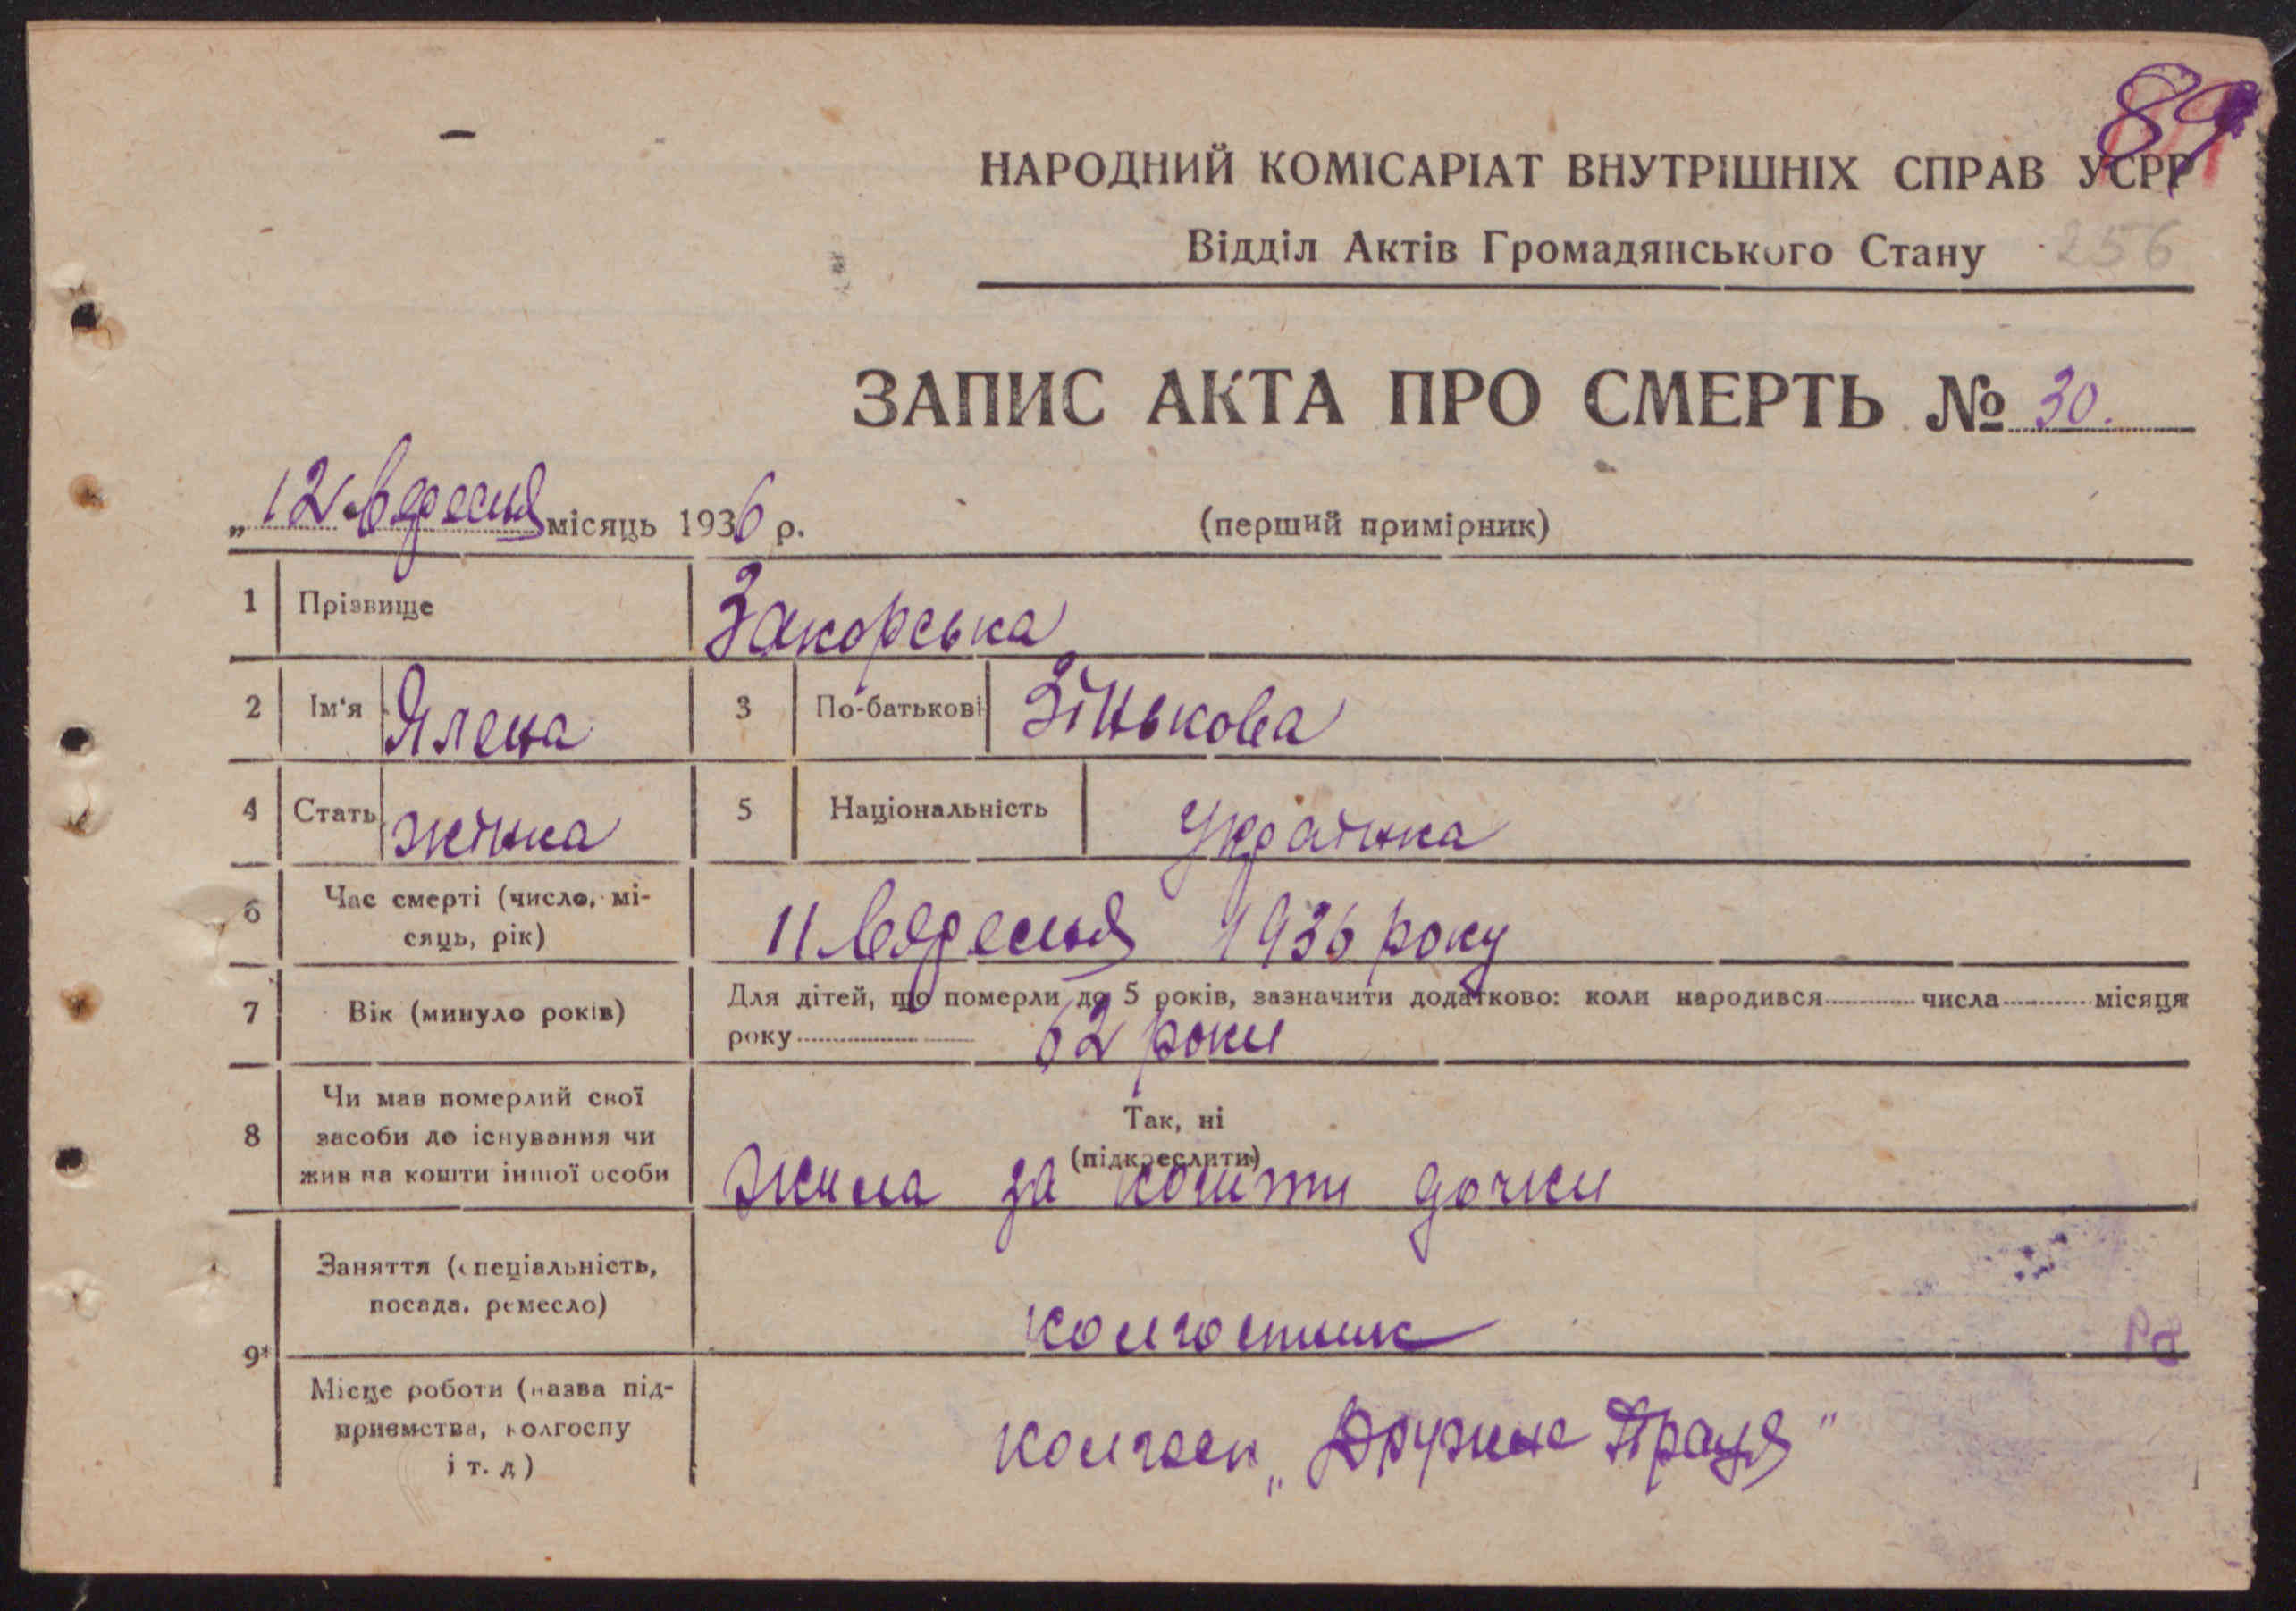 89
НАРОДНИЙ КОМІСАРІАТ ВНУТРІШНІХ СПРАВ УСРР
Відділ Актів Громадянського Стану 256
ЗАПИС АКТА ПРО СМЕРТЬ № 30.
„12 вересня місяць 1936 р. (перший примірник)
1 Прізвище Закорська
2 Ім'я Ялена 3 По-батькові Зінькова
4 Стать жінка 5 Національність Українка
6 Час смерті (число, мі-
сяць, рік) 11 вересня 1936 року
7 Вік (минуло років) Для дітей, що померли до 5 років, зазначити додатково: коли народився числа місяця
року 62 роки
8 Чи мав померлий свої
засоби до існування чи
жив на кошти іншої особи
Так, ні
(підкреслити)
жила за кошти дочки
9* Заняття (спеціальність,
посада, ремесло) колгоспник
Місце роботи (назва під-
приємства, колгоспу
і т. д) колгосп „Дружна Праця"